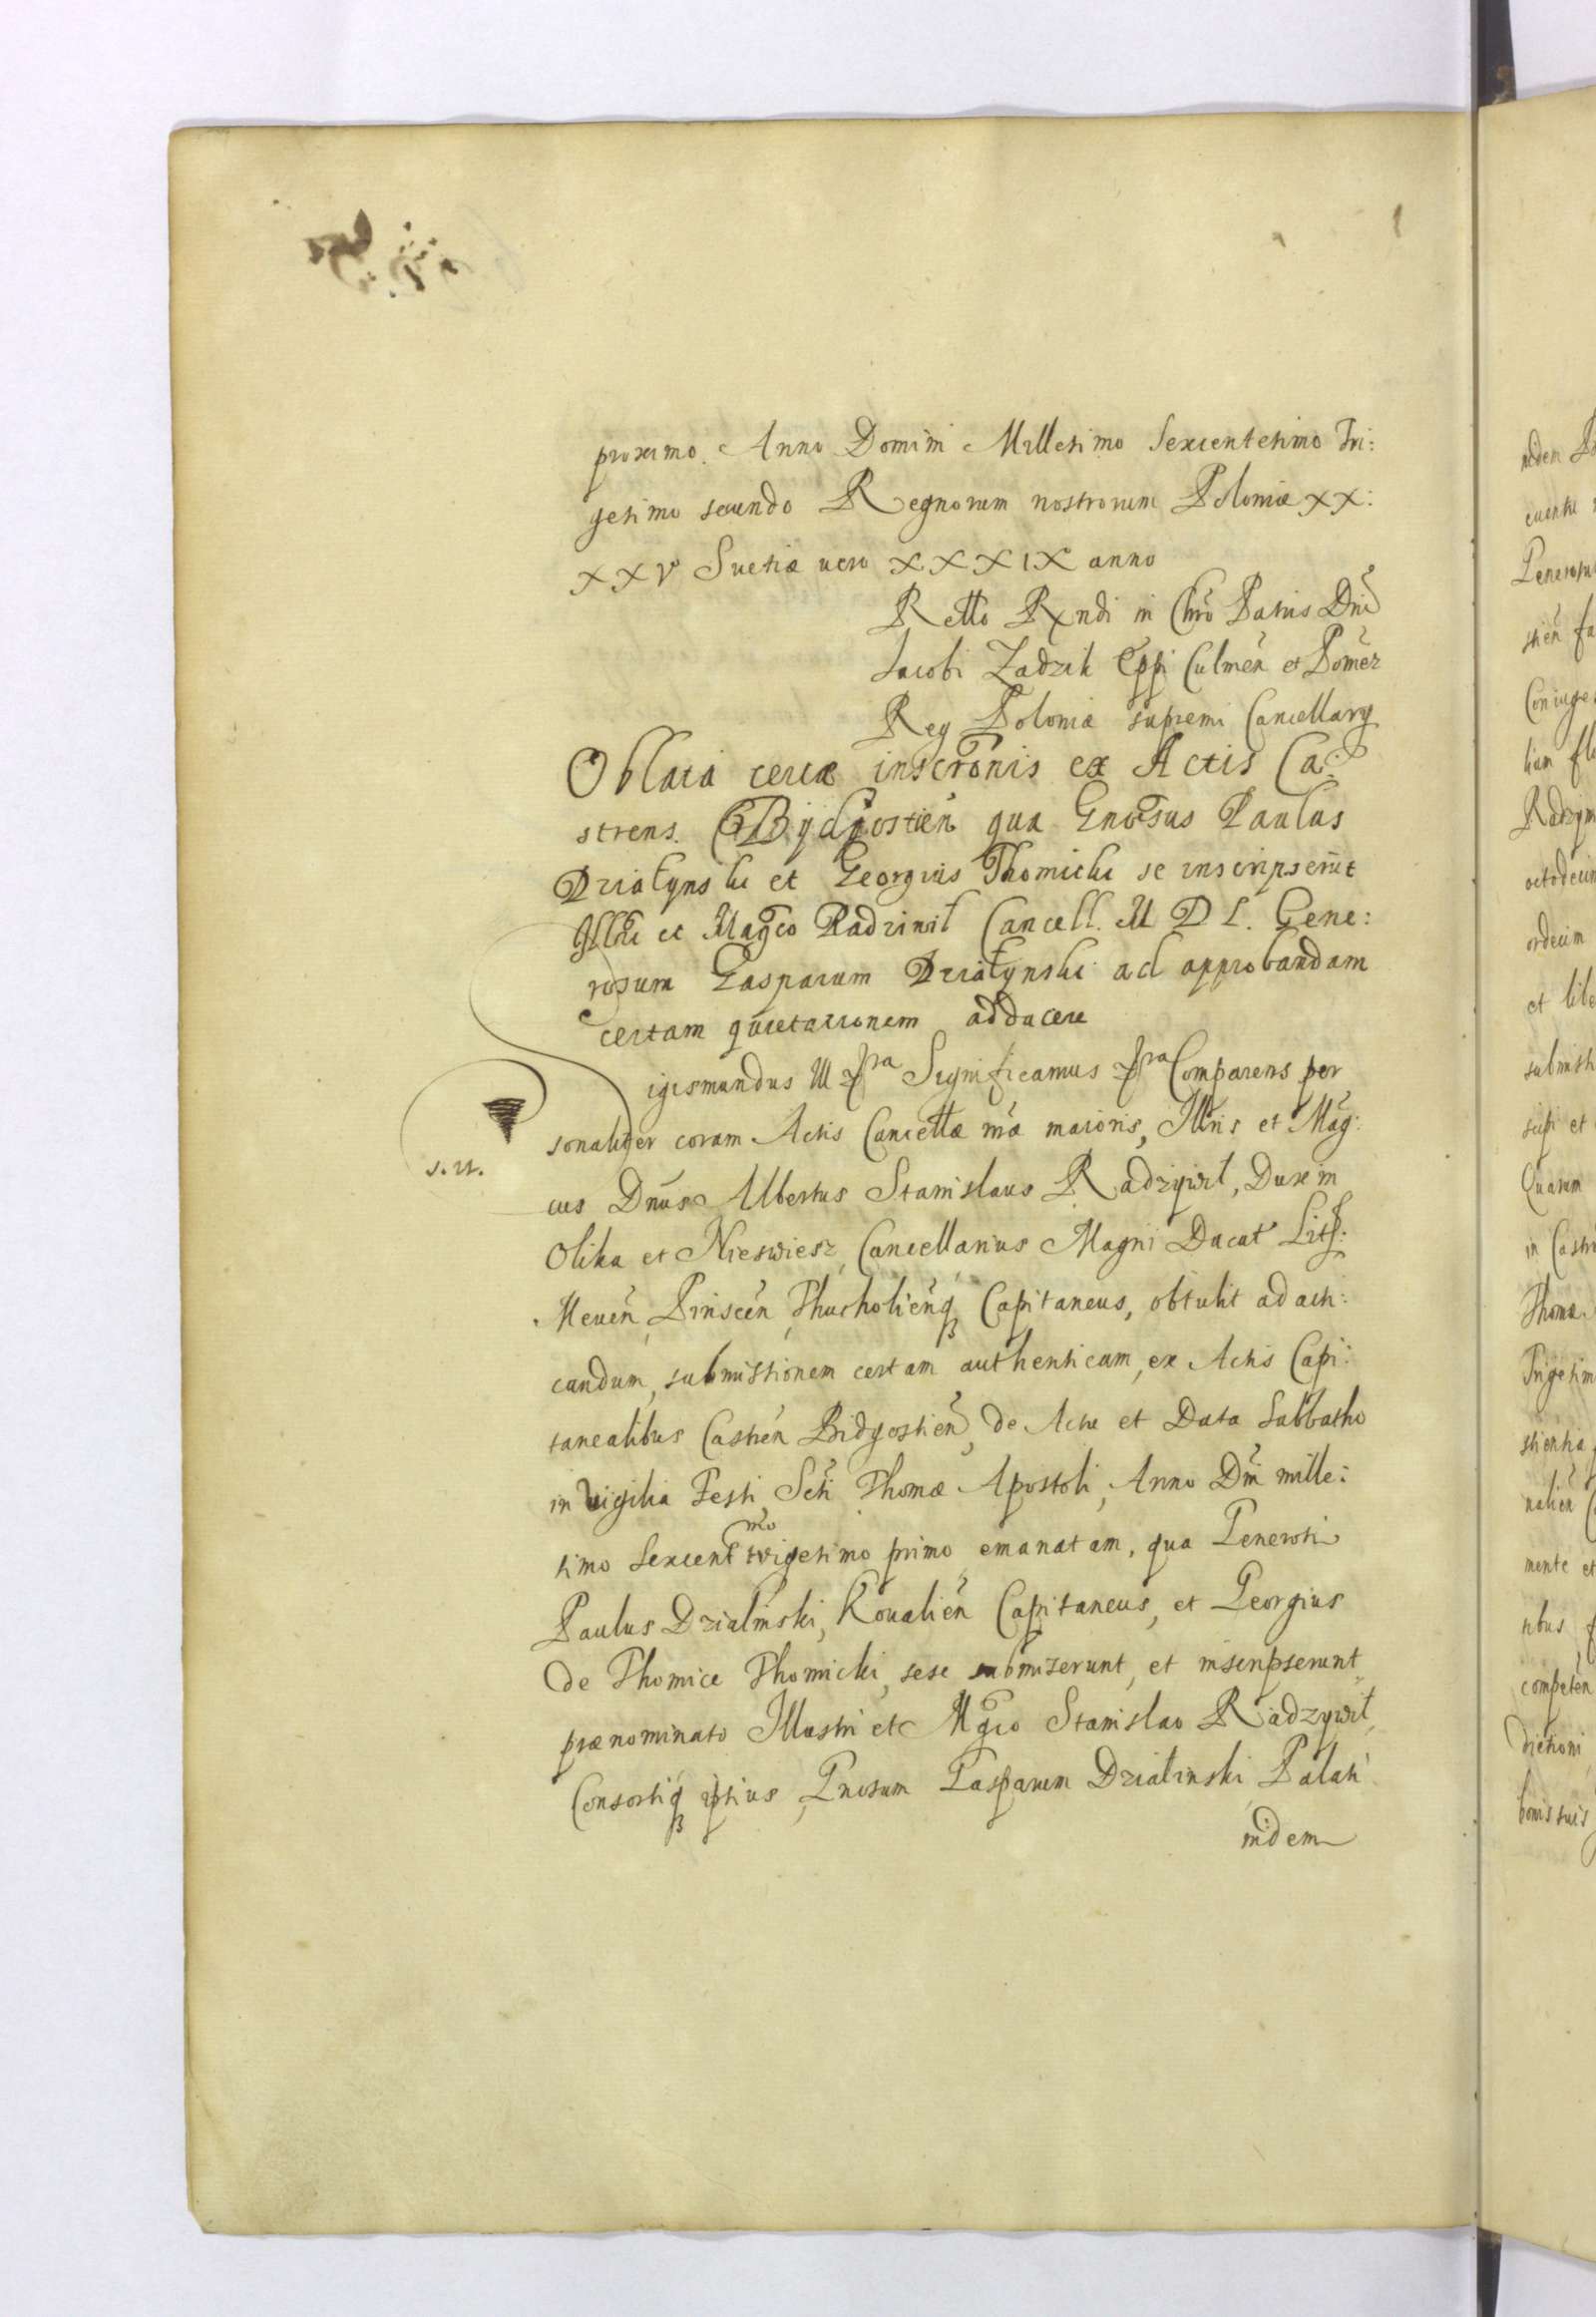 proximo. Anno Domini Millesimo Sexcentesimo Tri:
gesimo secundo Regnorum nostrorum Poloniæ XX:
XXV Suetiæ vero XXXIX anno
Retto Rxndi in Chro Patris Dni
Jacobi Zadzik Eppi Culmen et Pomez
Reg Poloniæ supremi Cancellarij
Oblata certæ inscronis ex Actis Ca:
strens. Bydgostien qua Gnosus Paulus
Dziatynski et Georgius Thomicki se inscripserut
Illri et Magco Radziwił Cancell. M D L. Gene:
rosum Gasparum Dziatynski ad approbandam
certam quietationem adducere
igismundus III pra Significamus pra Comparens per
sonaliter coram Actis Cancellæ mæ maioris, Illris et Mag:
cus Dnus Albertus Stanislaus Radzywił, Dux in
Olika et Nieswiesz, Cancellarius Magni Ducat Litt:
Meuen, Pinscen, Thucholienq Capitaneus, obtulit ad acti:
candum, submissionem certam authenticam, ex Actis Capi:
tanealibus Castren Bidgostien, de Actu et Data Sabbatho
in Vigilia Festi Scti Thomæ Apostoli, Anno Dni mille:
simo Sexcent mo trigesimo primo emanatam, qua Generosi
Paulus Dzialinski, Kovalien Capitaneus, et Georgius
de Thomice Thomicki, sese submiserunt, et inscripserunt
prænominato Illustri et Mgco Stanislao Radzywił,
Consortiq ipsius, Gnosum Gasparum Dziatinski, Palati
nidem
S. R.